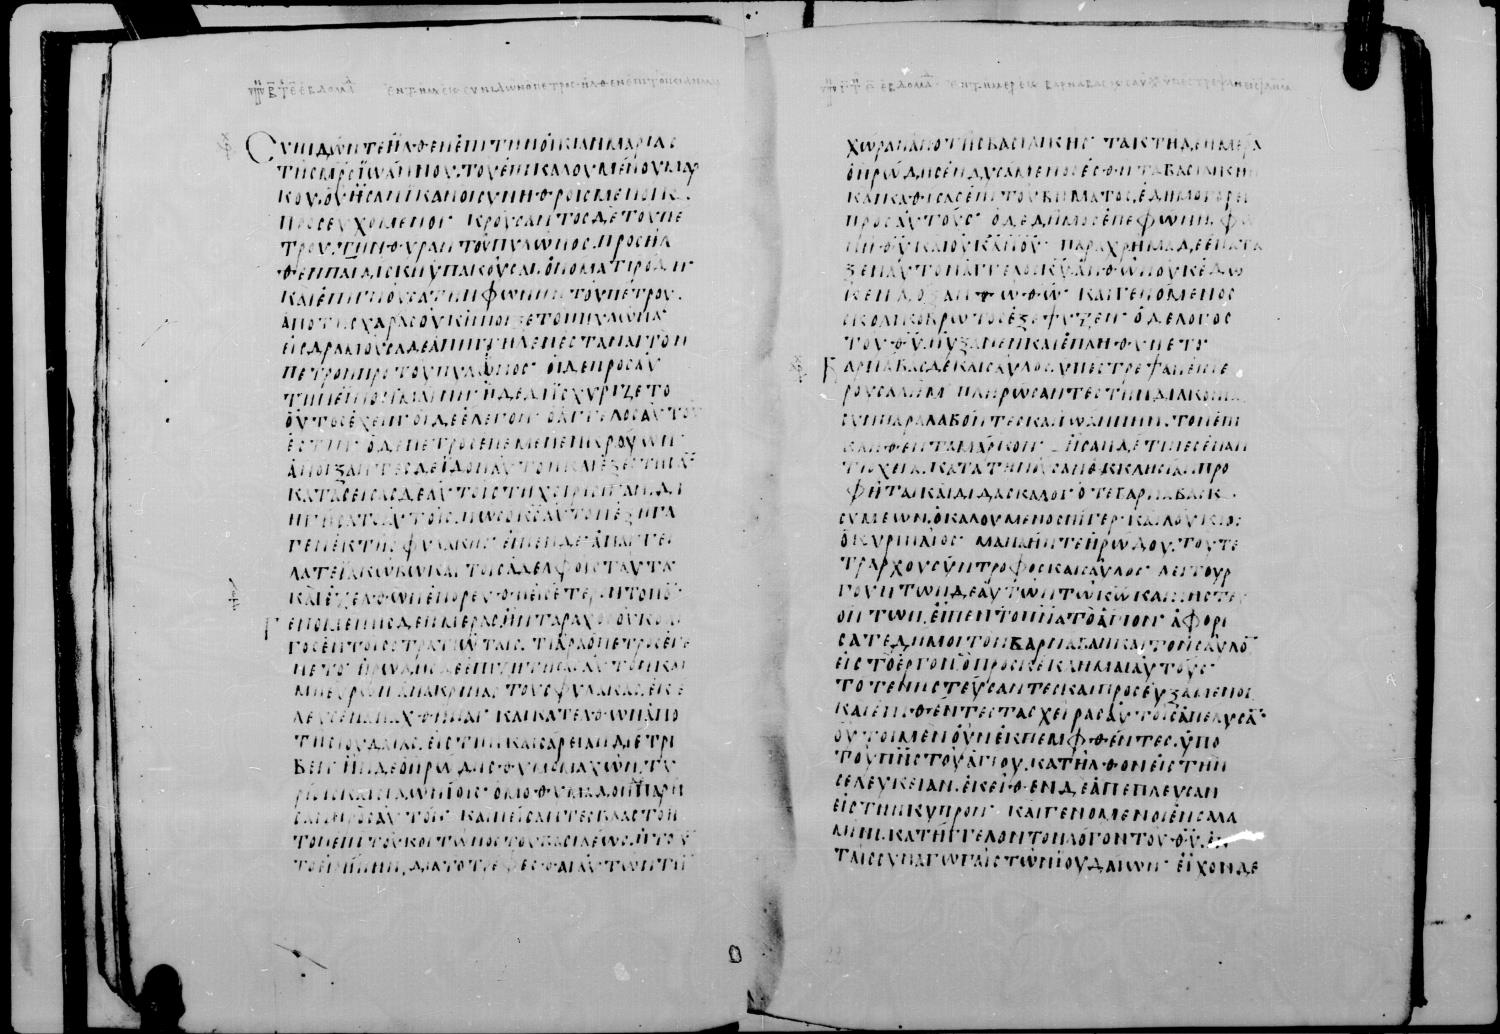 Συνιδών τε ἦλθεν ἐπὶ τὴν οἰκίαν μαρίας
τῆς μρ̅ς ἰωάννου. τοῦ ἐπικαλουμένου μαρ
κου. οὗ ἦσαν ἱκανοὶ συνηθροισμένοι κ
προσευχόμενοι· κρούσαντος δὲ τοῦ πέ
τρου. τὴν θύραν τοῦ πυλῶνος. προσῆλ
θεν παιδίσκη ὑπακοῦσαι. ὀνόματι ρόδη·
καὶ ἐπιγνοῦσα τὴν φωνὴν τοῦ πέτρου.
ἀπὸ τῆς χαρᾶς οὐκ ἤνοιξε τὸν πυλῶνα·
εἰσδραμοῦσα δὲ ἀπήγγειλεν ἑστάναι τὸν
πέτρον πρὸ τοῦ πυλῶνος· οἱ δὲ πρὸς αὐ
τὴν εἶπον μαίνῃ· ἡ δὲ διϊσχυρίζετο
οὕτως ἔχειν· οἱ δὲ ἔλεγον· ὁ ἄγγελος αὐτοῦ
ἐστιν· ὁ δὲ πέτρος ἐπέμενεν κρούων·
ἀνοίξαντες δὲ εἶδον αὐτὸν καὶ ἐξέστησα̅·
κατασείσας δὲ αὐτοῖς τῇ χειρὶ σιγᾶν. δι
ηγήσατο αὐτοῖς. πῶς ὁ κ̅ς̅ αὐτὸν ἐξήγα
γεν ἐκ τῆς φυλακῆς· εἶπεν δὲ ἀπαγγεί
λατε ἰακώβω καὶ τοῖς ἀδελφοῖς ταῦτα·
καὶ ἐξελθὼν ἐπορεύθη εἰς ἕτερον τόπο̅·
Γενομένης δὲ ἡμέρας. ἦν τάραχος οὐκ ὀλί
γος ἐν τοῖς στρατιώταις. τί ἄρα ὁ πέτρος ἐγέ
νετο· ἡρώδης δὲ ἐπιζητήσας αὐτὸν καὶ
μὴ εὑρὼν ἀνακρίνας τοὺς φύλακας. ἐκέ
λευσεν ἀπαχθῆναι· καὶ κατελθὼν ἀπὸ
τῆς ἰουδαίας. εἰς τὴν καισάρειαν διέτρι
βεν· ἦν δὲ ὁ ἡρώδης θυμομαχῶν. τυ
ρίοις καὶ σιδωνίοις· ὁμοθυμαδὸν παρῆ
σαν πρὸς αὐτόν· καὶ πείσαντες βλάστον
τὸν ἐπὶ τοῦ κοιτῶνος τοῦ βασιλέως. ᾐτοῦ
το εἰρήνην. διὰ τὸ τρέφεσθαι αὐτῶν τὴν
χώραν ἀπὸ τῆς βασιλικῆς· τακτῇ δὲ ἡμέρα
ὁ ἡρώδης ἐνδυσάμενος ἐσθῆτα βασιλικὴν
καὶ καθίσας ἐπὶ τοῦ βήματος. ἐδημογόρει
πρὸς αὐτούς· ὁ δὲ δῆμος ἐπεφώνει. φω
νὴ θ̅υ̅ καὶ οὐκ ἀ̅ν̅ο̅υ̅· παραχρῆμα δὲ ἐπάτα
ξεν αὐτὸν ἄγγελος κ̅υ̅ ἀνθ ὧν οὐκ ἔδω
κεν δόξαν τῶ θ̅ω̅· καὶ γενόμενος
σκωληκόβρωτος ἐξέψυξεν· ὁ δὲ λόγος
τοῦ θ̅υ̅ ηὔξανεν καὶ ἐπληθύνετο·
Βαρνάβας δὲ καὶ σαῦλος. ὑπέστρεψαν εἰς ἱε
ρουσαλὴμ πληρώσαντες τὴν διακονίαν
συνπαραλαβόντες καὶ ἰωάννην. τὸν ἐπι
κληθέντα μάρκον· ἦσαν δέ τινες ἐν ἀν
τιοχεία. κατὰ τὴν οὖσαν ἐκκλησίαν. προ
φῆται καὶ διδάσκαλοι· ὅ τε βαρνάβας κ
συμεὼν. ὁ καλούμενος νίγερ· καὶ λούκιος
ὁ κυρηναῖος· μαναήν τε ἡρώδου. τοῦ τε
τράρχου σύντροφος καὶ σαῦλος· λειτουρ
γούντων δὲ αὐτῶν τῶ κ̅ω̅ καὶ νηστευ
όντων. εἶπεν τὸ π̅ν̅α̅ τὸ ἅγιον· ἀφορί
σατε δή μοι τὸν βαρνάβαν καὶ τὸν σαῦλο̅
εἰς τὸ ἔργον. ὃ προσκέκλημαι αὐτούς·
τότε νηστεύσαντες καὶ προσευξάμενοι
καὶ ἐπιθέντες τὰς χεῖρας αὐτοῖς ἀπέλυσα̅·
οὗτοι μὲν οὖν ἐκπεμφθέντες. ὑπὸ
τοῦ π̅ν̅ς̅ τοῦ ἁγίου. κατῆλθον εἰς τὴν
σελεύκειαν. ἐκεῖθεν δὲ ἀπέπλευσαν
εἰς τὴν κύπρον· καὶ γενόμενοι ἐν σαλα
μῖνι. κατήγγελον τὸν λόγον τοῦ θ̅υ̅. ἐν
ταῖς συναγωγαῖς τῶν ἰουδαίων· εἶχον δὲ